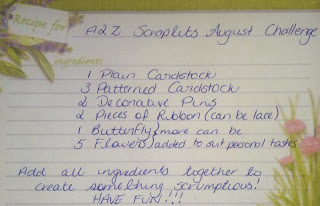 Recipe for
A2Z Scraplets August Challenge
ingredients
1 Plain Cardstock
3 Patterned Cardstock
2 Decorative Pins
2 Pieces of Ribbon (can be lace)
1 Butterfly } more can be
5 Flowers } added to suit personal tastes
Add all ingredients together to
create something scrumptious!
HAVE FUN!!!